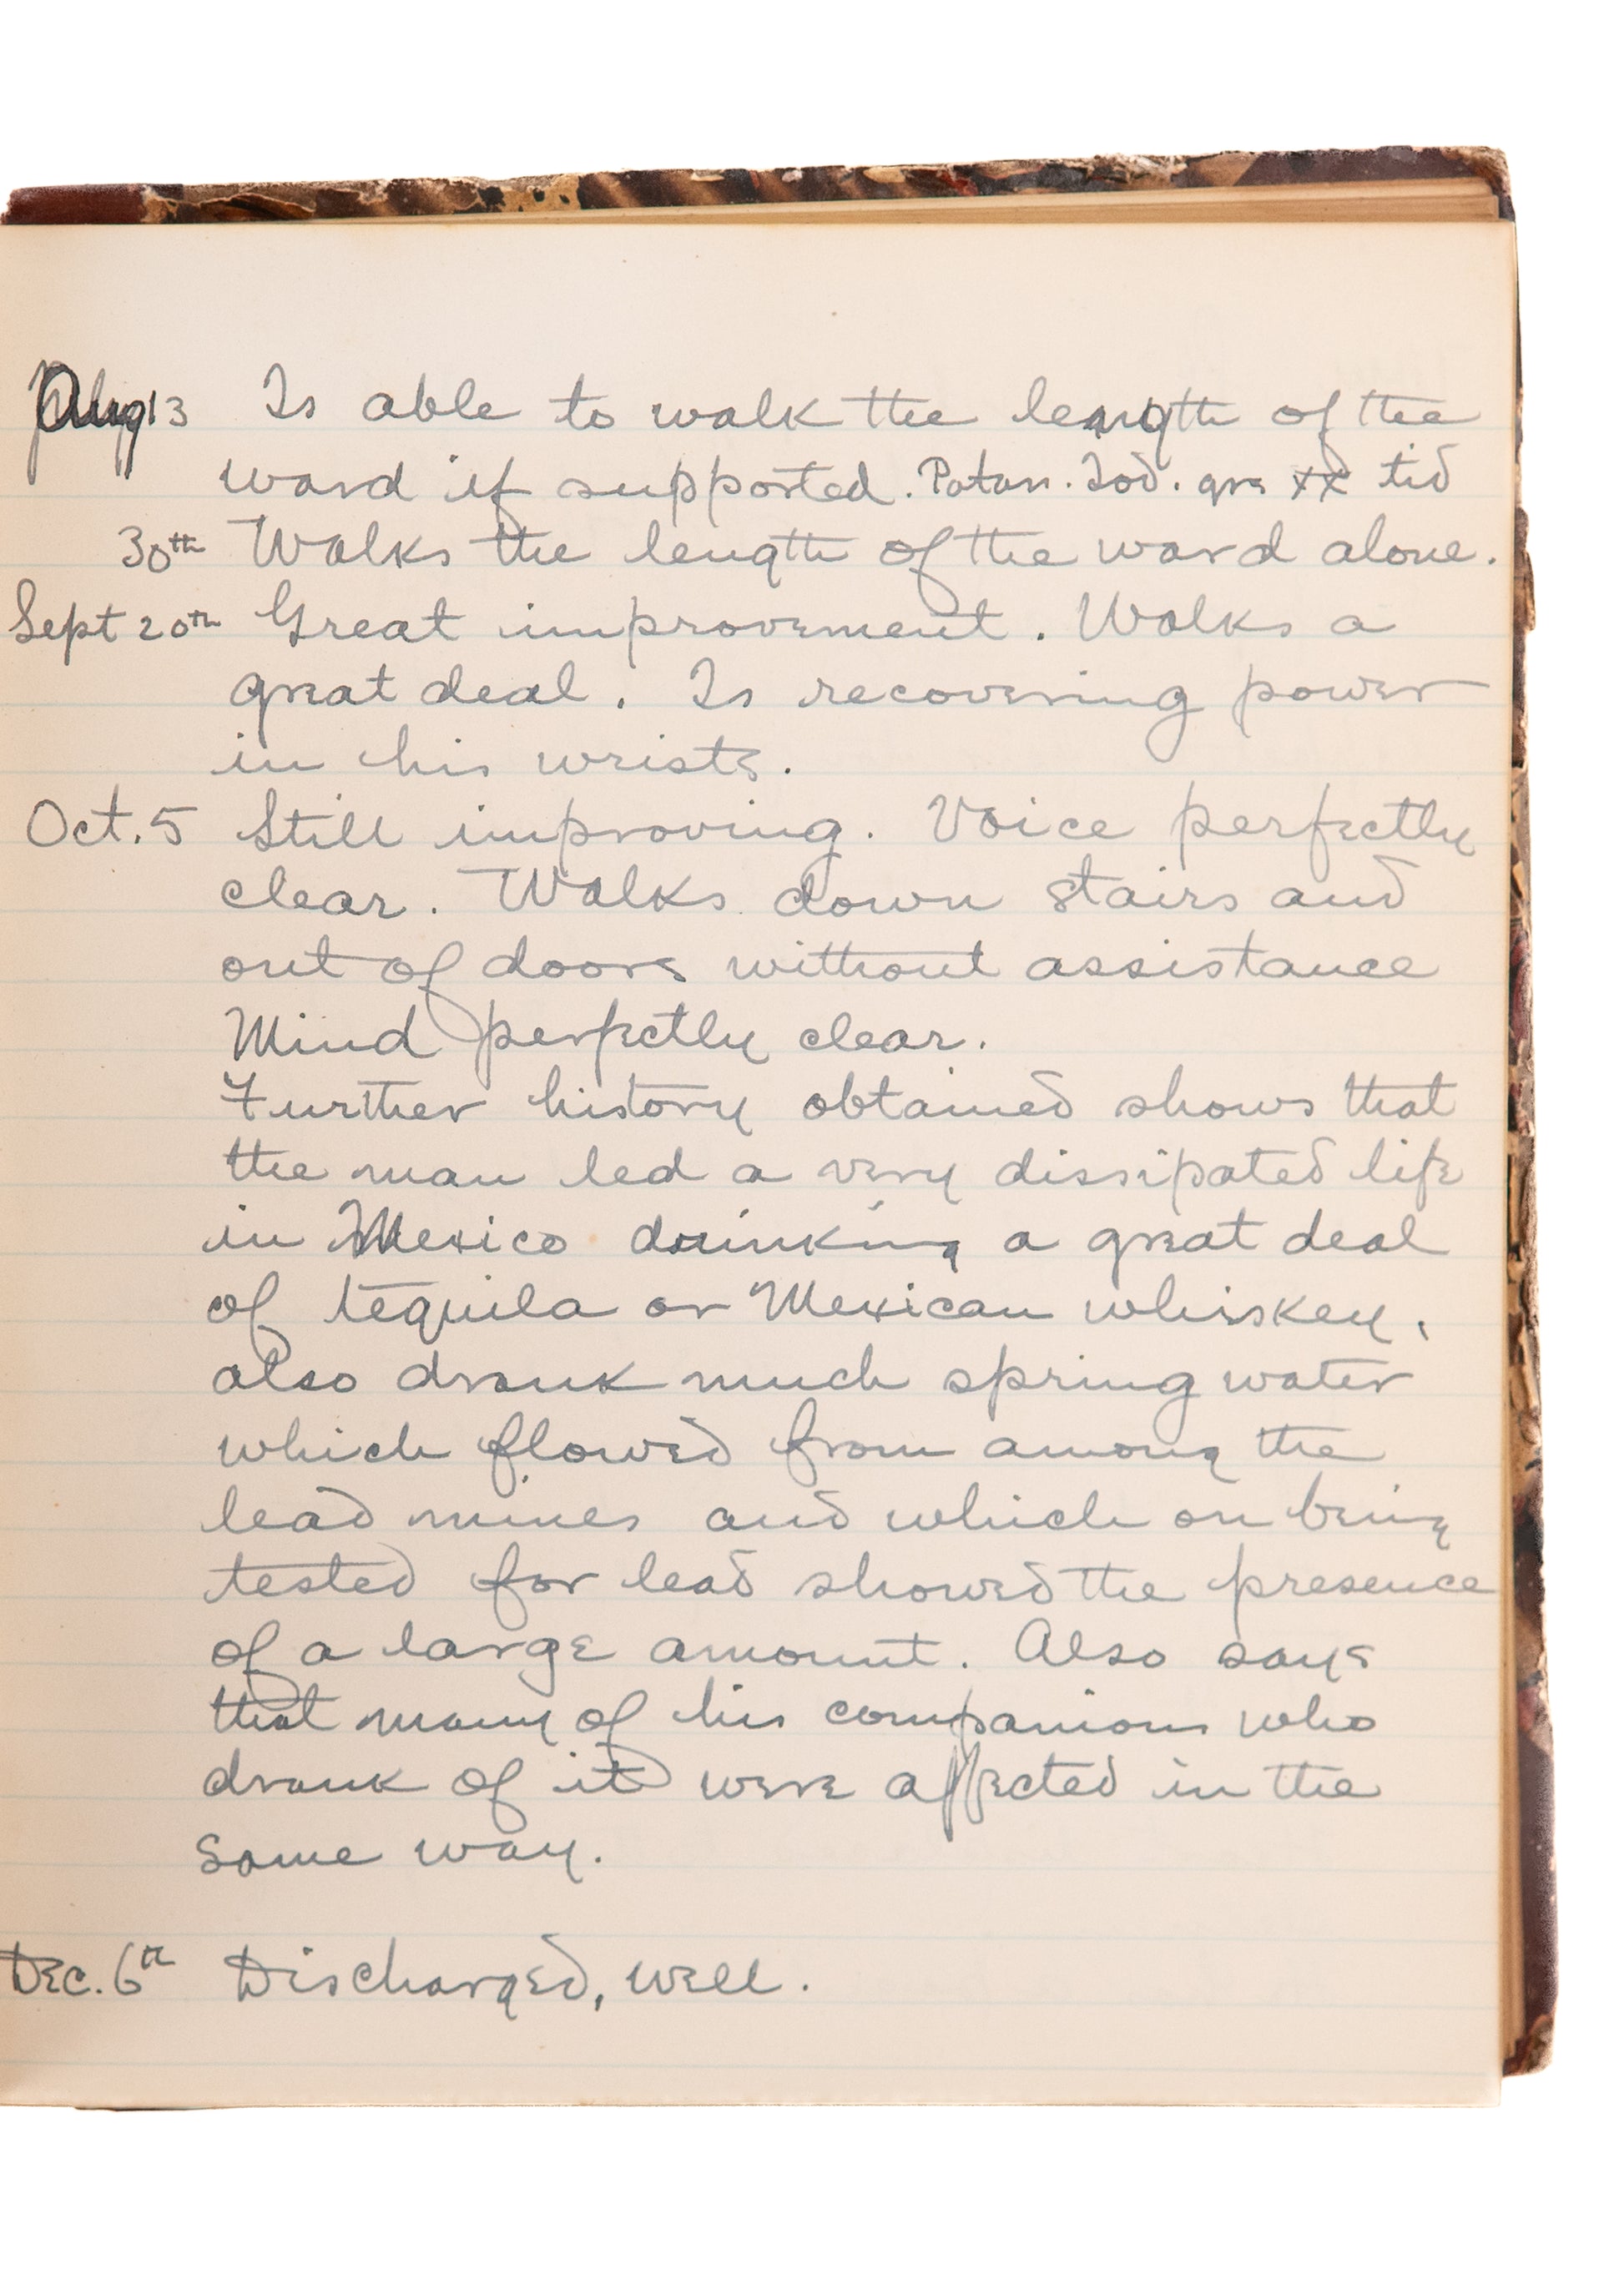 Aug 13 Is able to walk the length of the
ward if supported. Potass. Iod. grs xx tid
30th Walks the length of the ward alone.
Sept 20th Great improvement. Walks a
great deal. Is recovering power
in his wrists.
Oct. 5 Still improving. Voice perfectly
clear. Walks down stairs and
out of doors without assistance
Mind perfectly clear.
Further history obtained shows that
the man led a very dissipated life
in Mexico drinking a great deal
of tequila or Mexican whiskey,
also drank much spring water
which flowed from among the
lead mines and which on being
tested for lead showed the presence
of a large amount. Also says
that many of his companions who
drank of it were affected in the
same way.
Dec. 6th Discharged, well.